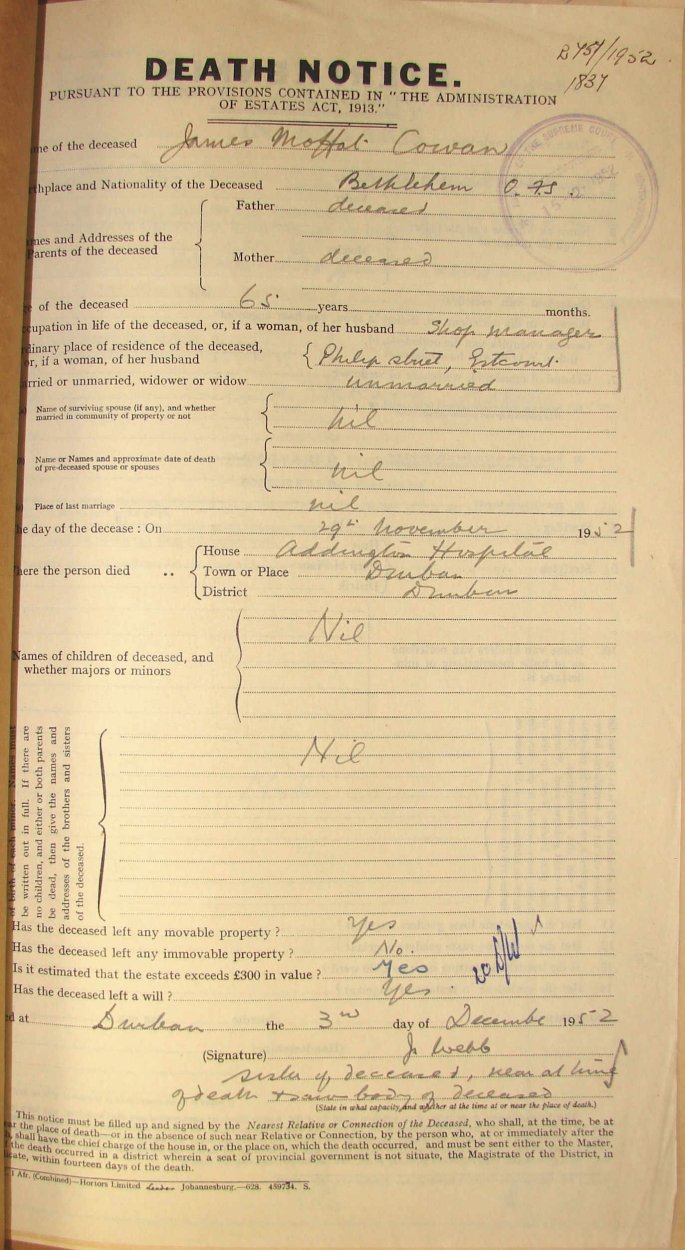 B 757/1952
1837
DEATH NOTICE.
PURSUANT TO THE PROVISIONS CONTAINED IN "THE ADMINISTRATION
OF ESTATES ACT, 1913."
me of the deceased James Moffat Cowan
thplace and Nationality of the Deceased Bethlehem O.F.S.
Father deceased
mes and Addresses of the
Parents of the deceased
Mother deceased
e of the deceased 65 years months.
cupation in life of the deceased, or, if a woman, of her husband Shop manager
dinary place of residence of the deceased,
or, if a woman, of her husband Philip street, Estcourt.
rried or unmarried, widower or widow unmarried
Name of surviving spouse (if any), and whether
married in community of property or not nil
Name or Names and approximate date of death
of pre-deceased spouse or spouses nil
Place of last marriage nil
he day of the decease : On 29th November 1952
House Addington Hospital
here the person died .. Town or Place Durban
District Durban
Names of children of deceased, and
whether majors or minors Nil
of birth of each minor. Names must
be written out in full. If there are
no children, and either or both parents
be dead, then give the names and
addresses of the brothers and sisters
of the deceased.
Nil
Has the deceased left any movable property ? Yes
Has the deceased left any immovable property ? No.
Is it estimated that the estate exceeds £300 in value ? Yes
Has the deceased left a will ? Yes.
d at Durban the 3rd day of Decembe 1952
(Signature) J. Webb
sister of deceased, near at time
of death & saw body of deceased
(State in what capacity, and whether at the time at or near the place of death.)
This notice must be filled up and signed by the Nearest Relative or Connection of the Deceased, who shall, at the time, be at
r the place of death—or in the absence of such near Relative or Connection, by the person who, at or immediately after the
, shall have the chief charge of the house in, or the place on, which the death occurred, and must be sent either to the Master,
the death occurred in a district wherein a seat of provincial government is not situate, the Magistrate of the District, in
icate, within fourteen days of the death.
1 Afr. (Combined)—Hortors Limited Johannesburg.—628. 459734. S.